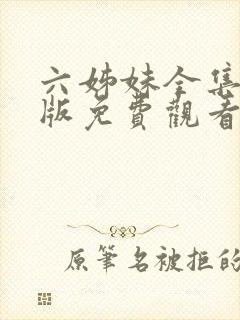 六姊妹全集
版免費觀看
原筆名被拒的